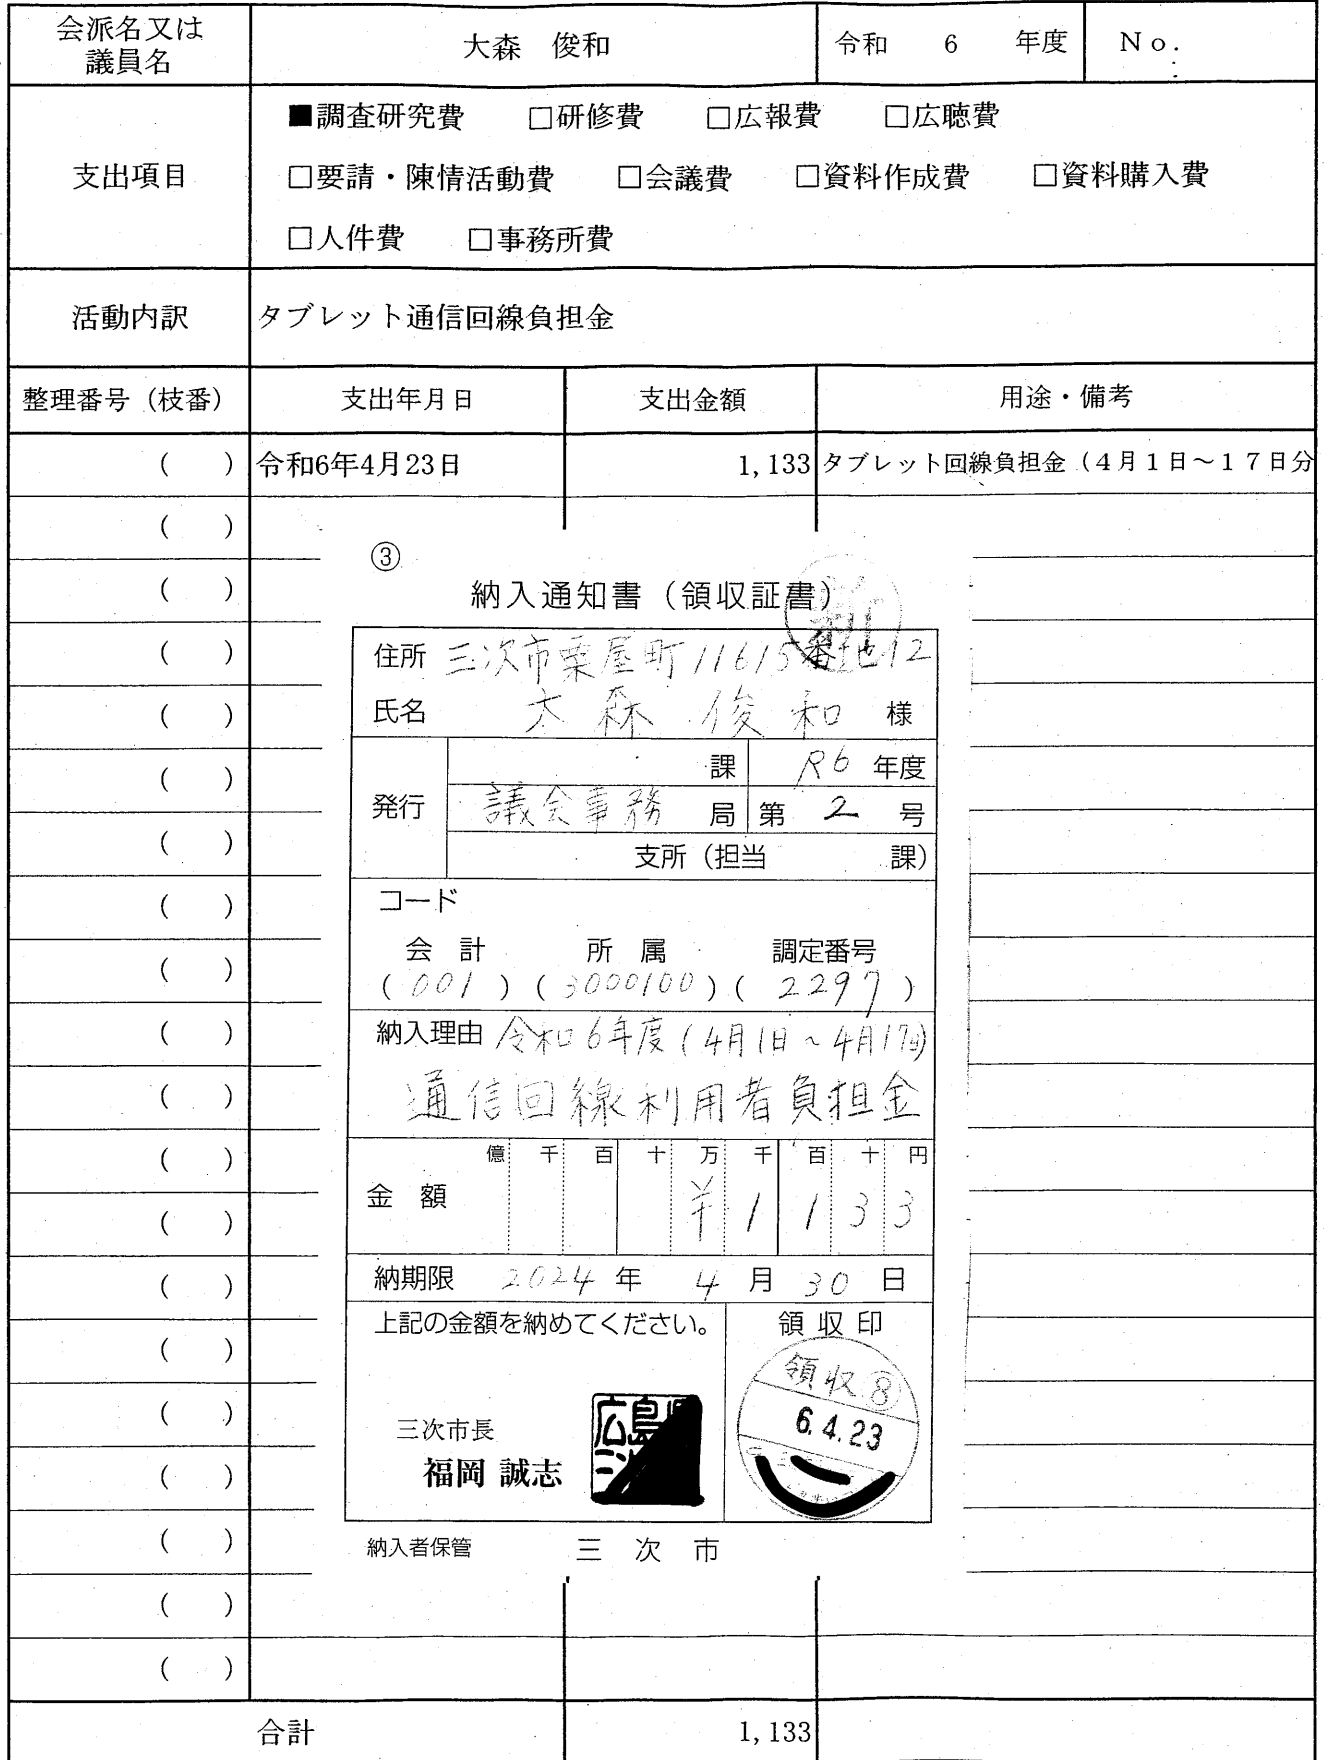 会派名又は
議員名
大森 俊和
令和 6 年度
No.
支出項目
■調査研究費 □研修費 □広報費 □広聴費
□要請・陳情活動費 □会議費 □資料作成費 □資料購入費
□人件費 □事務所費
活動内訳
タブレット通信回線負担金
整理番号（枝番） 支出年月日 支出金額 用途・備考
（ ） 令和6年4月23日 1,133 タブレット回線負担金（4月1日～17日分
（ ）
（ ）
（ ）
（ ）
（ ）
（ ）
（ ）
（ ）
（ ）
（ ）
（ ）
（ ）
（ ）
（ ）
（ ）
（ ）
（ ）
（ ）
（ ）
③
納入通知書（領収証書）
住所 三次市粟屋町11615番地12
氏名 大森 俊和 様
発行
課 R6 年度
議会事務 局 第 2 号
支所（担当 課）
コード
会計 所属 調定番号
(001) (3000100) (2297)
納入理由 令和6年度(4月1日～4月17日)
通信回線利用者負担金
億 千 百 十 万 千 百 十 円
金額 ¥1133
納期限 2024年 4月 30日
上記の金額を納めてください。
領収印
領収⑧
6.4.23
広島
三次市長
福岡 誠志
納入者保管 三次市
合計 1,133